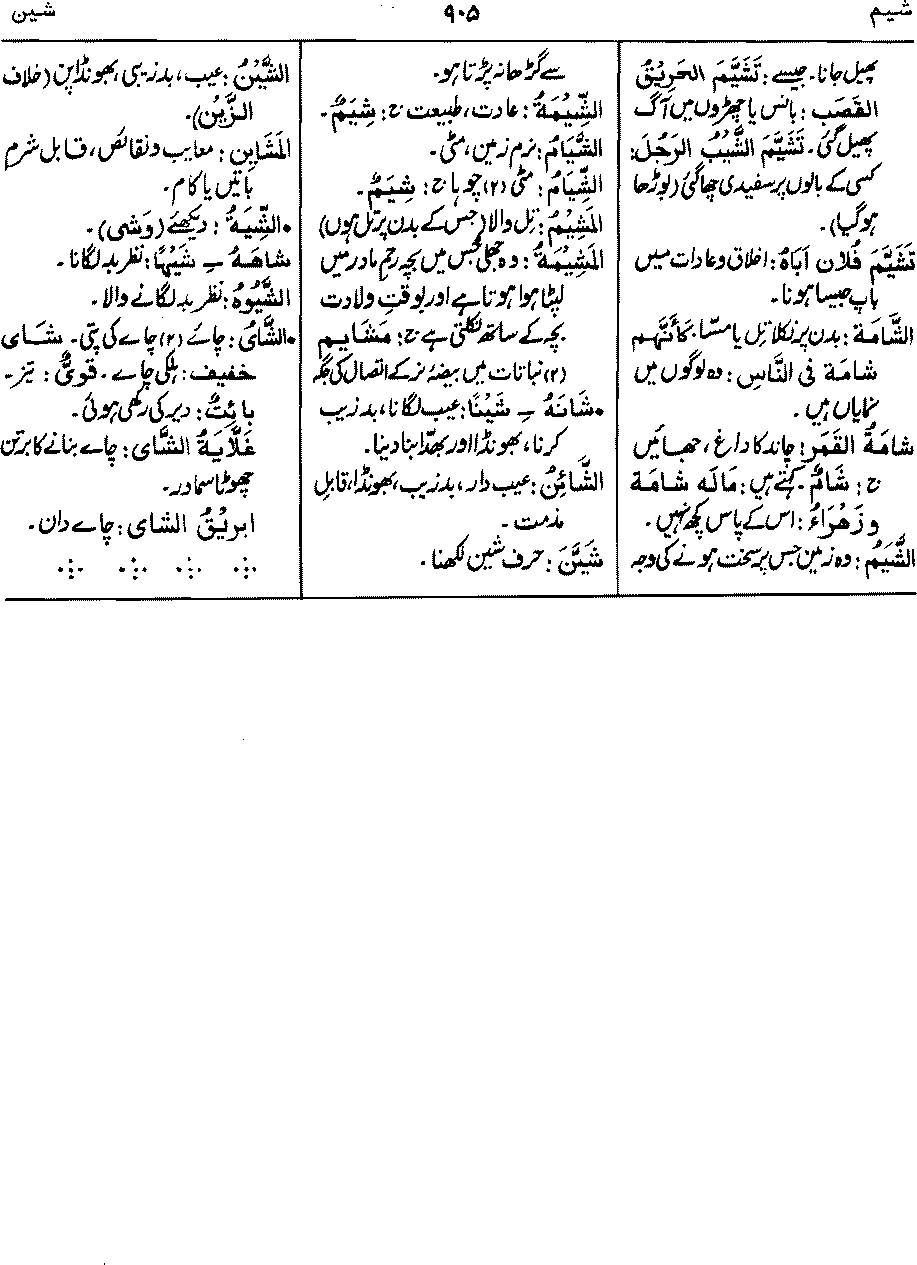 شیم
۹۰۵
شین
پھیل جانا۔ جیسے: تَشَیَّمَ الحَرِیْقُ
القَصَب: بانس یا چھڑوں میں آگ
پھیل گئی۔ تَشَیَّمَ الشَّیْبُ الرَجُلَ:
کسی کے بالوں پر سفیدی چھاگئی (بوڑھا
ہوگیا)۔
تَشَیَّمَ فُلَان اَبَاہُ: اخلاق وعادات میں
باپ جیسا ہونا۔
الشَّامَة: بدن پر نکلا تِل یا مسّا۔ کَأَنَّهم
شامَة فی النَّاسِ: وہ لوگوں میں
نمایاں ہیں۔
شامَةُ القَمَر: چاند کا داغ، جھائیں
ج: شَامٌ۔ کہتے ہیں: مَالَه شامَة
و زَهْرَاءُ: اس کے پاس کچھ نہیں۔
الشَّیَمُ: وہ زمین جس پر سخت ہونے کی وجہ
سے گڑھا نہ پڑتا ہو۔
الشِّیْمَةُ: عادت، طبیعت ج: شِیَمٌ۔
الشَّیَامُ: نرم زمین، مٹی۔
الشِّیَامُ: مٹی (۲) چوہا ج: شِیَمٌ۔
المَشِیْمُ: تِل والا (جس کے بدن پر تل ہوں)
المَشِیْمَةُ: وہ جھلی جس میں بچہ رحمِ مادر میں
لپٹا ہوا ہوتا ہے اور بوقتِ ولادت
بچہ کے ساتھ نکلتی ہے ج: مَشَایِم
(۲) نباتات میں بیضۂ نر کے اتصال کی جگہ
•شَانَهُ ــِ شَیْنًا: عیب لگانا، بدزیب
کرنا، بھونڈا اور بھدّا بنا دینا۔
الشَّائِنُ: عیب دار، بدزیب، بھونڈا، قابلِ
مذمت۔
شَیَّنَ: حرف شین لکھنا۔
الشَّیْنُ: عیب، بدزیبی، بھونڈاپن (خلاف
الزَّیْن)۔
المَشَایِن: معایب ونقائص، قابل شرم
باتیں یا کام۔
•الشِّیَةُ: دیکھئے (وَشی)۔
شاهَهُ ــِ شَیْهًا: نظر بد لگانا۔
الشَّیُوْهُ: نظر بد لگانے والا۔
•الشَّایُ: چائے (۲) چاے کی پتی۔ شَای
خفیف: ہلکی چاے۔ قویٌّ: تیز۔
بائِتٌ: دیر کی رکھی ہوئی۔
غَلَّایَةُ الشَّای: چاے بنانے کا برتن
چھوٹا سماور۔
ابریْقُ الشای: چاے دان۔